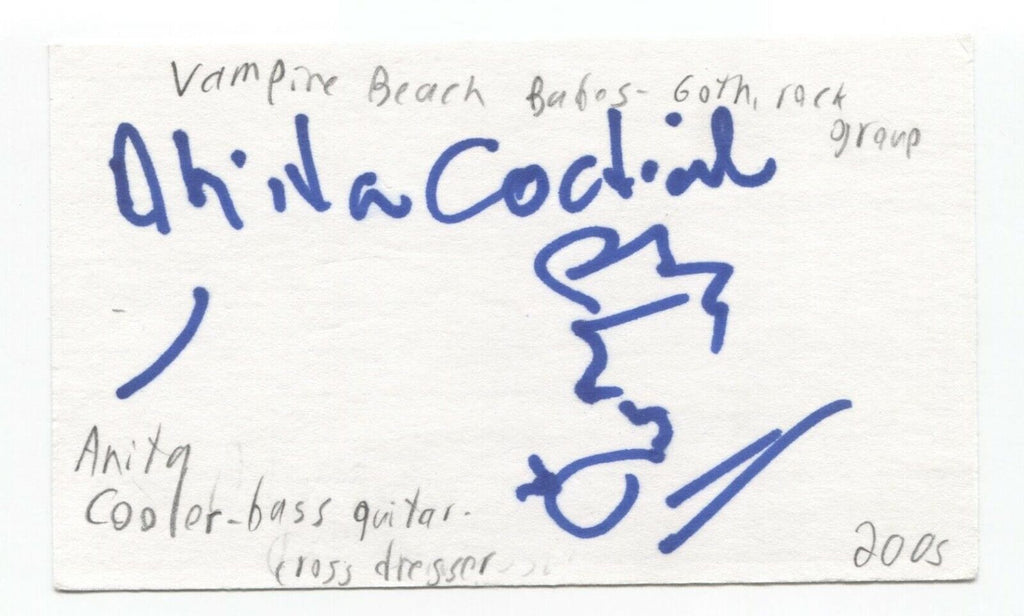 Vampire Beach Babes - Goth, rock
group
Anita
Anita
Cooler - bass guitar.
cross dresser
2005